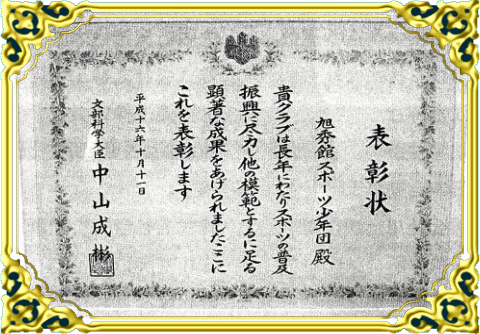 表彰状
旭秀館スポーツ少年団 殿
貴クラブは長年にわたりスポーツの普及
振興に尽力し他の模範とするに足る
顕著な成果をあげられましたここに
これを表彰します
平成十六年十月十一日
文部科学大臣 中山成彬